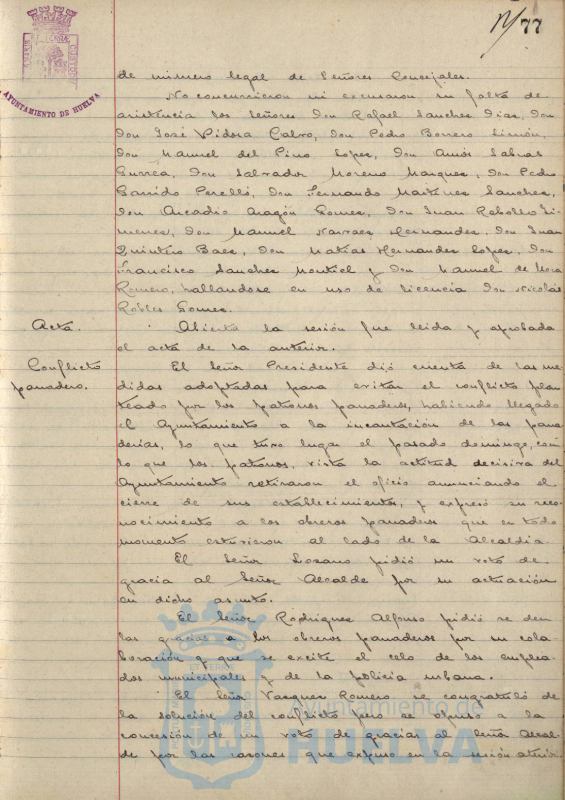 77
AYUNTAMIENTO DE HUELVA
de número legal de Señores Concejales.
No concurrieron ni excusaron su falta de
asistencia los Señores Don Rafael Sanchez Diaz, Don
Don José Pidosa Calvo, Don Pedro Borrero Limón,
Don Manuel del Pino Lopez, Don Amós Sabras
Gurrea, Don Salvador Moreno Marquez, Don Pedro
Garrido Perelló, Don Fernando Martinez Sanchez,
Don Arcadio Aragón Gomez, Don Juan Rebollo Ji-
menez, Don Manuel Narvaez Hernandez, Don Juan
Quintero Baez, Don Matias Hernandez Lopez, Don
Francisco Sanchez Montiel y Don Manuel de Mora
Romero, hallandose en uso de licencia Don Nicolás
Robles Gomez.
Acta.
Abierta la sesión fue leida y aprobada
el acta de la anterior.
Conflicto
panadero.
El Señor Presidente dió cuenta de las me-
didas adoptadas para evitar el conflicto plan
teado por los patronos panaderos, habiendo llegado
el Ayuntamiento a la incautación de las pana
derias, lo que tuvo lugar el pasado domingo, con
lo que los patronos, vista la actitud decisiva del
Ayuntamiento retiraron el oficio anunciando el
cierre de sus establecimientos, y expresó su reco-
nocimiento a los obreros panaderos que en todo
momento estuvieron al lado de la Alcaldía.
El Señor Lozano pidió un voto de
gracia al Señor Alcalde por su actuación
en dicho asunto.
El Señor Rodriguez Alfonso pidió se den
las gracias a los obreros panaderos por su cola-
boración y que se excite el celo de los emplea-
dos municipales y de la policia urbana.
El Señor Vazquez Romero se congratuló de
la solución del conflicto pero se opuso a la
concesión de un voto de gracias al Señor Alcal-
de por las razones que expuso en la sesión anterior
Ayuntamiento de
HUELVA